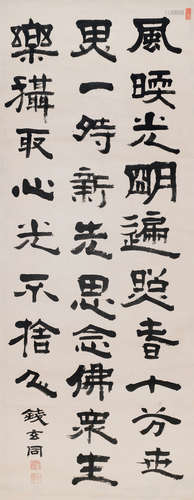 風暖光明遍照春十方世
界一時新先思念佛眾生
樂攝取心光不捨人
錢玄同